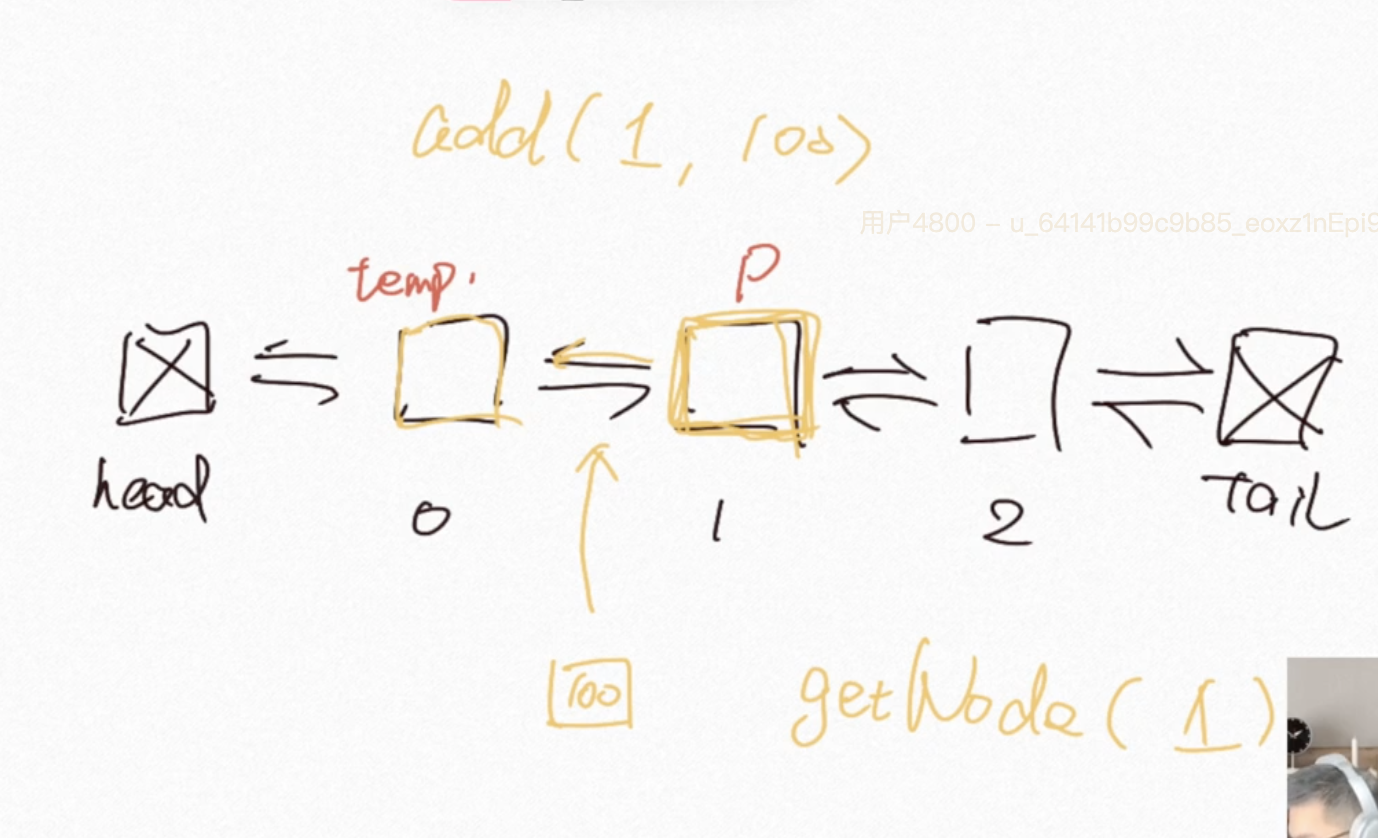 add(1, 100)
用户4800 – u_64141b99c9b85_eoxz1nEpi9
temp. P
head 0 1 2 Tail
100
getNode(1)